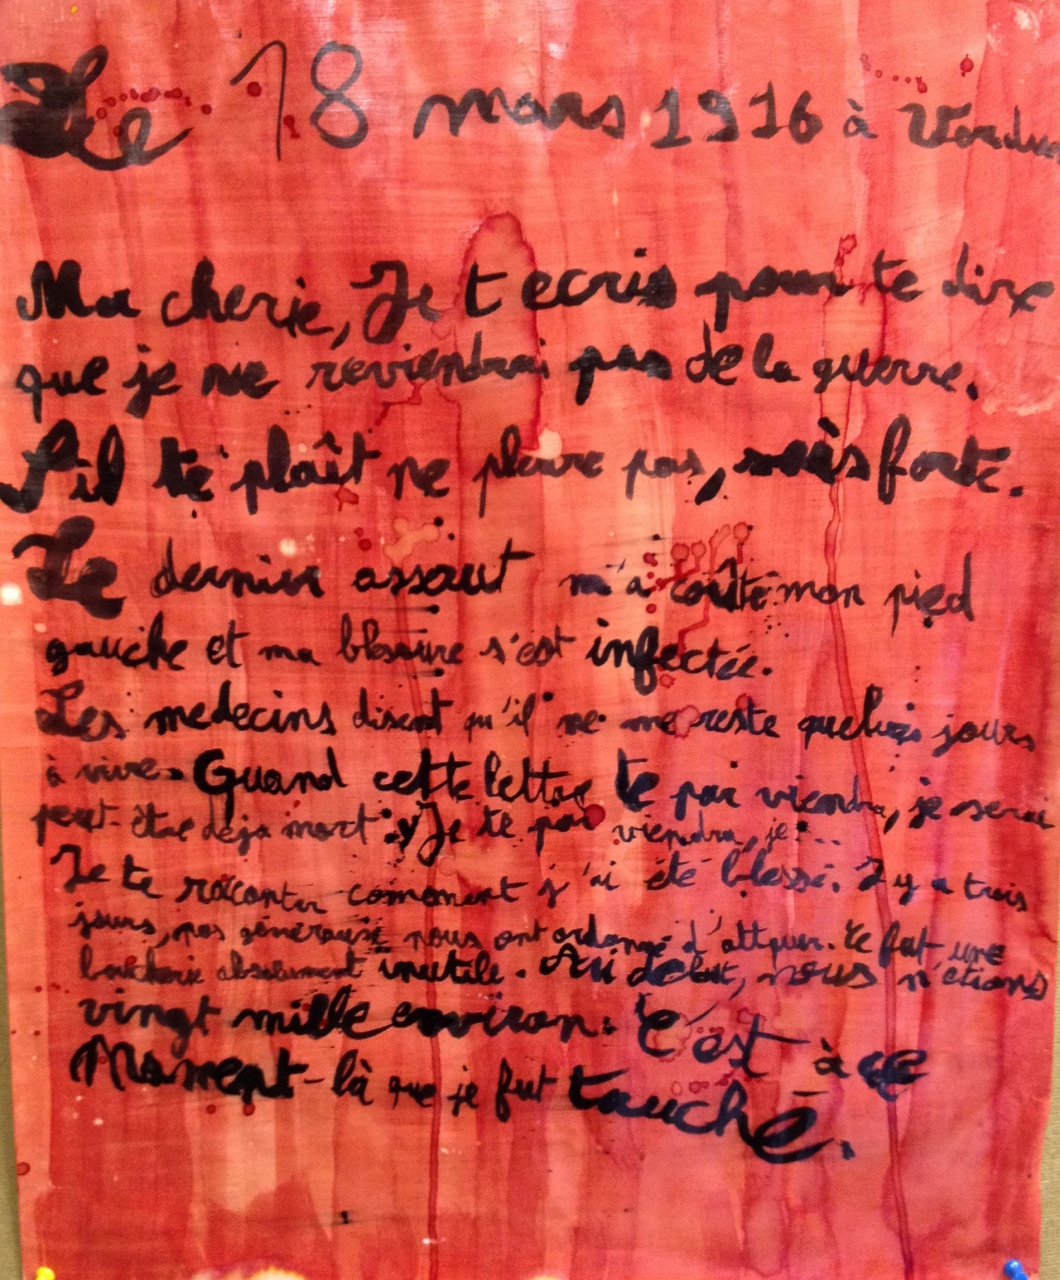 Le 18 mars 1916 à Verdun
Ma cherie, Je t ecris pour te dire
que je ne reviendrai pas de la guerre.
S'il te plaît ne pleure pas, sois forte.
Le dernier assaut m'a coûté mon pied
gauche et ma blessure s'est infectée.
Les medecins disent qu'il ne me reste quelques jours
à vivre. Quand cette lettre te par viendra, je serai
peut-être deja mort. Je te par viendra, je...
Je te raconter comment j'ai été blessé. Il y a trois
jours, nos généraux nous ont ordonné d'attquer. Ce fut une
boucherie absolument inutile. Au debut, nous n'étions
vingt mille environ. C'est à ce
Moment-là que je fut touché.